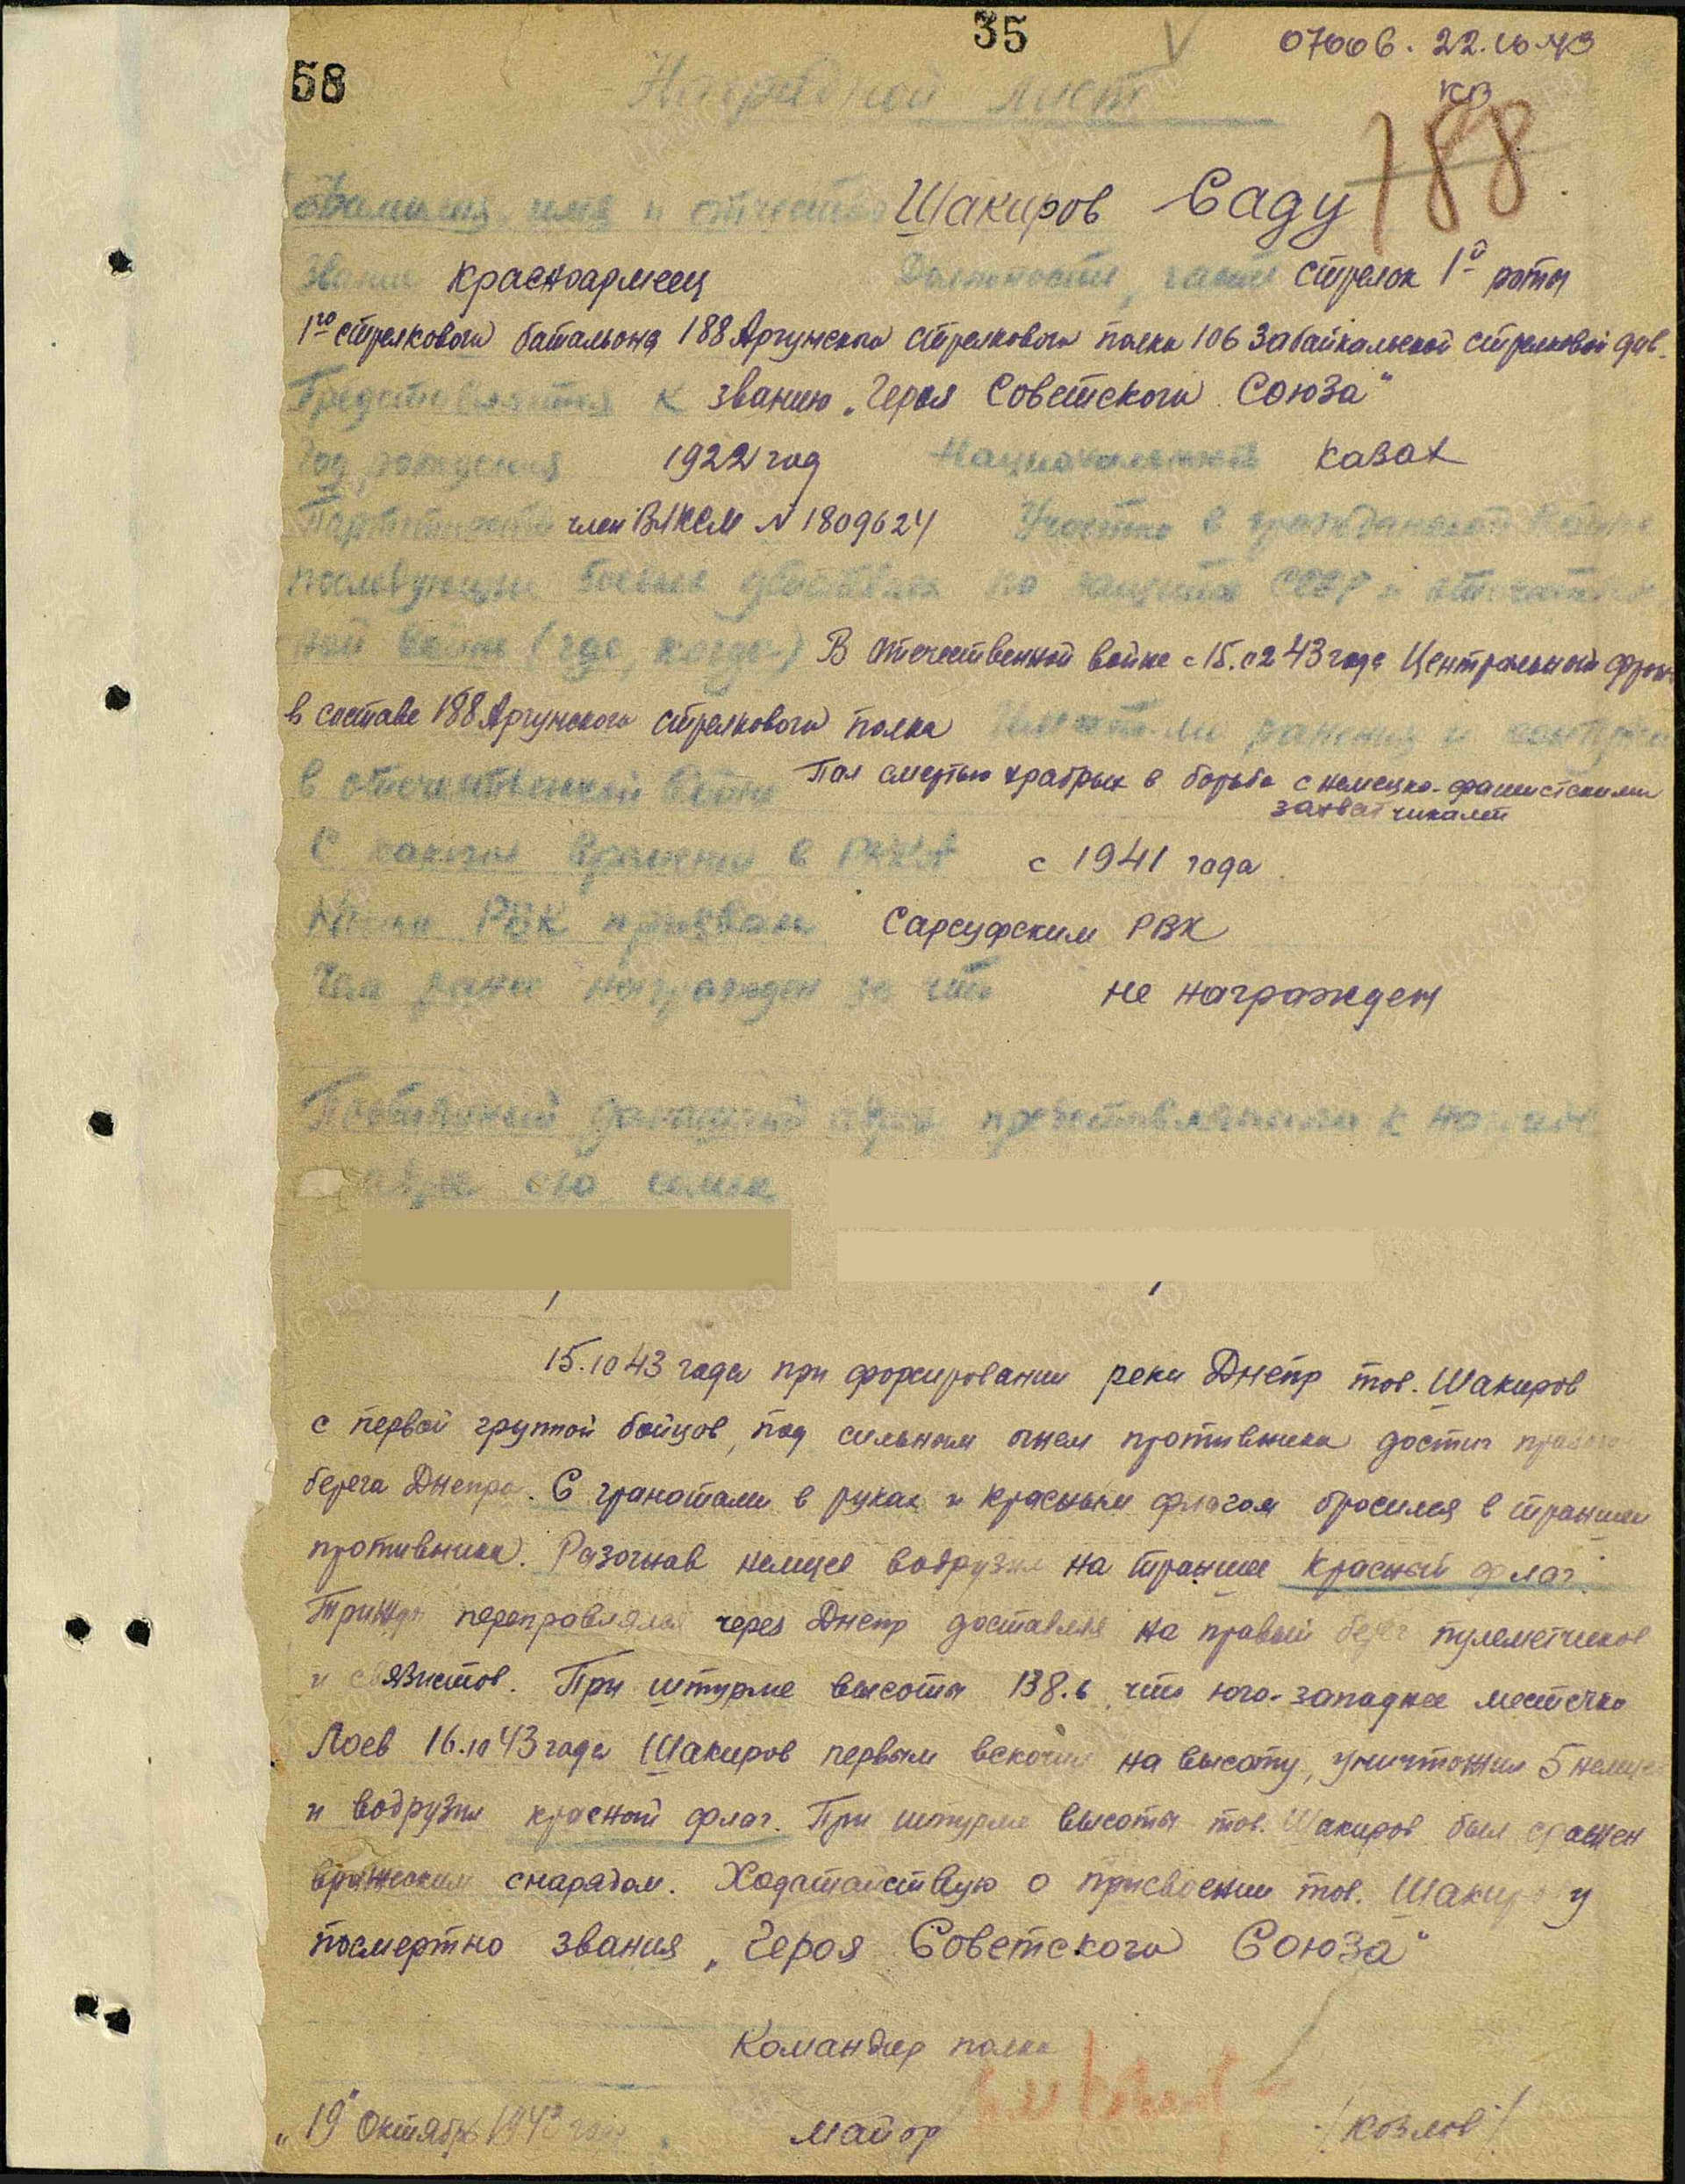 35
07006. 22.10.43
КВ
58
Наградной лист
188
Фамилия, имя и отчество Шакиров Саду
Звание красноармеец Должность, часть стрелок 1й роты
1го стрелкового батальона 188 Аргунского стрелкового полка 106 Забайкальской стрелковой див.
Представляется к званию „Героя Советского Союза"
Год рождения 1922 год Национальность казах
Партийность член ВЛКСМ N 1809624 Участие в гражданской войне
последующие боевые действиях по защите СССР и отечествен
ной войне (где, когда) В Отечественной войне с 15.02 43 года Центральный фрон
в составе 188 Аргунского стрелкового полка Имеет ли ранения и контузии
в отечественной войне Пал смертью храбрых в борьбе с немецко-фашистскими
захватчиками
С какого времени в РККА с 1941 года
Каким РВК призван Сарсуфским РВК
Чем ранее награжден за что не награжден
Постоянный домашний адрес представляемого к награде
адрес его семьи
15.10 43 года при форсировании реки Днепр тов. Шакиров
с первой группой бойцов, под сильным огнем противника достиг правого
берега Днепра. С гранатами в руках и красным флагом бросился в траншеи
противника. Разогнав немцев водрузил на траншее красный флаг.
Трижды переправлялся через Днепр доставляя на правый берег пулеметчиков
и связистов. При штурме высоты 138.6, что юго-западнее местечко
Лоев 16.10 43 года Шакиров первым вскочил на высоту, уничтожил 5 немцев
и водрузил красный флаг. При штурме высоты тов. Шакиров был сражен
вражеским снарядом. Ходатайствую о присвоении тов. Шакирову
посмертно звания „Героя Советского Союза"
Командир полка
„19" Октябрь 1943 года майор /Козлов/